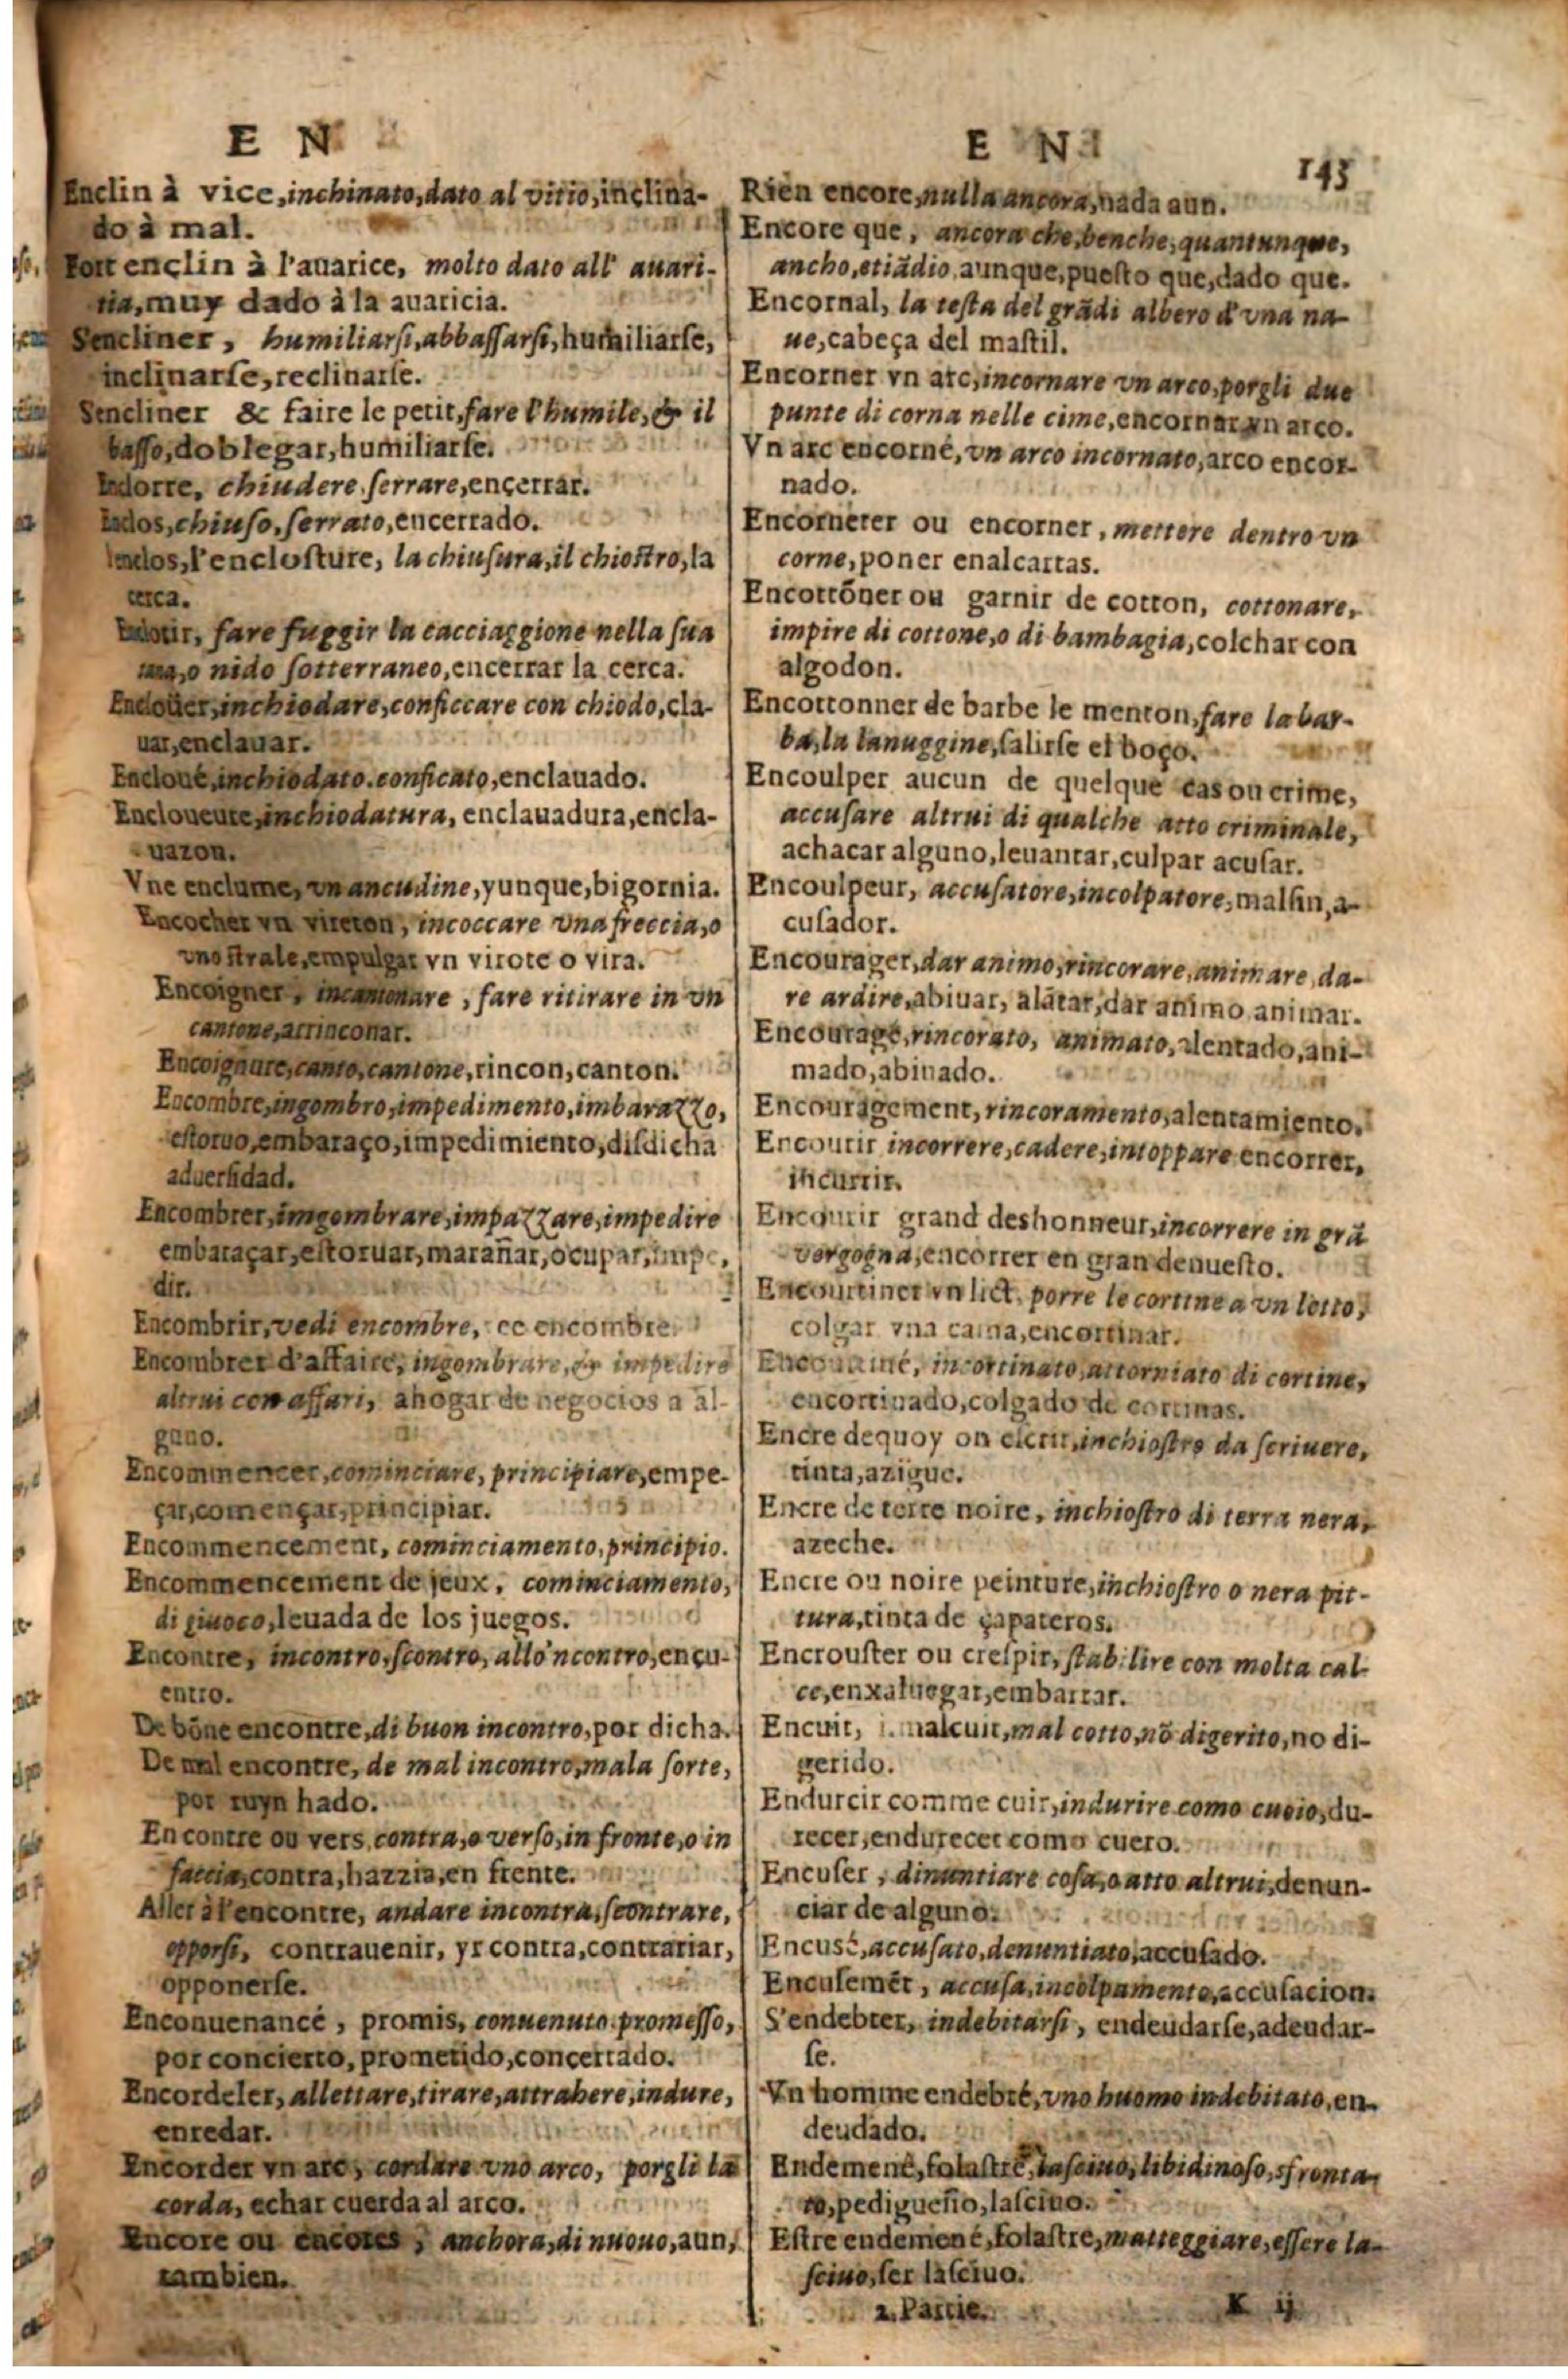 E N
Enclin à vice, inchinato, dato al vitio, inclina-
do à mal.
Fort enclin à l'auarice, molto dato all' auari-
tia, muy dado à la auaricia.
S'encliner, humiliarsi, abbassarsi, humiliarse,
inclinarse, reclinarse.
S'encliner & faire le petit, fare l'humile, & il
basso, doblegar, humiliarse.
Enclorre, chiudere, serrare, encerrar.
Enclos, chiuso, serrato, encerrado.
l'enclos, l'enclosture, la chiusura, il chiostro, la
cerca.
fare fuggir la cacciaggione nella sua
tana, o nido sotterraneo, encerrar la cerca.
Encloüer, inchiodare, conficcare con chiodo, cla-
uar, enclauar.
Encloué, inchiodato, conficato, enclauado.
Encloueure, inchiodatura, enclauadura, encla-
uazon.
Vne enclume, vn ancudine, yunque, bigornia.
Encocher vn vireton, incoccare vna freccia, o
vno strale, empulgar vn virote o vira.
Encoigner, incantonare, fare ritirare in vn
cantone, arrinconar.
Encoignure, canto, cantone, rincon, canton.
Encombre, ingombro, impedimento, imbarazzo,
estoruo, embaraço, impedimiento, disdicha
aduersidad.
Encombrer, imgombrare, impazzare, impedire
embaraçar, estoruar, marañar, ocupar, impe,
dir.
Encombrir, vedi encombre, ce encombre.
Encombrer d'affaire, ingombrare, & impedire
altrui con affari, ahogar de negocios a al-
guno.
Encommencer, cominciare, principiare, empe-
çar, començar, principiar.
Encommencement, cominciamento, principio.
Encommencement de jeux, cominciamento,
di giuoco, leuada de los juegos.
Encontre, incontro, scontro, allo'ncontro, encu-
entro.
De bône encontre, di buon incontro, por dicha.
De mal encontre, de mal incontro, mala sorte,
por ruyn hado.
Encontre ou vers, contra, o verso, in fronte, o in
faccia, contra, hazzia, en frente.
Aller à l'encontre, andare incontra, scontrare,
opporsi, contrauenir, yr contra, contrariar,
opponerse.
Enconuenancé, promis, conuenuto promesso,
por concierto, prometido, concertado.
Encordeler, allettare, tirare, attrahere, indure,
enredar.
Encorder vn arc, cordare vno arco, porgli la
corda, echar cuerda al arco.
Encore ou encores, anchora, di nuouo, aun,
tambien.
E N
143
Rien encore, nulla ancora, nada aun.
Encore que, ancora che, benche, quantunque,
ancho, etiãdio, aunque, puesto que, dado que.
Encornal, la testa del grãdi albero d'vna na-
ue, cabeça del mastil.
Encorner vn arc, incornare vn arco, porgli due
punte di corna nelle cime, encornar vn arco.
Vn arc encorné, vn arco incornato, arco encor-
nado.
Encorneter ou encorner, mettere dentro vn
corne, poner enalcartas.
Encottõner ou garnir de cotton, cottonare,
impire di cottone, o di bambagia, colchar con
algodon.
Encottonner de barbe le menton, fare la bar-
ba, la lanuggine, salirse el boço.
Encoulper aucun de quelque cas ou crime,
accusare altrui di qualche atto criminale,
achacar alguno, leuantar, culpar acusar.
Encoulpeur, accusatore, incolpatore, malsin, a-
cusador.
Encourager, dar animo, rincorare, animare, da-
re ardire, abiuar, alẽtar, dar animo, animar.
Encouragé, rincorato, animato, alentado, ani-
mado, abiuado.
Encouragement, rincoramento, alentamiento.
Encourir incorrere, cadere, intoppare encorrer,
incurrir.
Encourir grand deshonneur, incorrere in grã
vergogna, encorrer en gran denuesto.
Encourtiner vn lict, porre le cortine a vn letto,
colgar vna cama, encortinar.
Encourtiné, incortinato, attorniato di cortine,
encortinado, colgado de cortinas.
Encre dequoy on escrit, inchiostro da scriuere,
tinta, azigue.
Encre de terre noire, inchiostro di terra nera,
azeche.
Encre ou noire peinture, inchiostro o nera pit-
tura, tinta de çapateros.
Encrouster ou crespir, stabilire con molta cal-
ce, enxaluegar, embarrar.
Encuit, i. malcuit, mal cotto, nõ digerito, no di-
gerido.
Endurcir comme cuir, indurire como cuoio, du-
recer, endurecer como cuero.
Encuser, dinuntiare cosa, o atto altrui, denun-
ciar de alguno.
Encusé, accusato, denuntiato, accusado.
Encusemẽt, accusa, incolpamento, accusacion.
S'endebter, indebitarsi, endeudarse, adeudar-
se.
Vn homme endebté, vno huomo indebitato, en-
deudado.
Endemené, folastre, lasciuo, libidinoso, sfronta-
to, pedigueño, lasciuo.
Estre endemené, folastre, matteggiare, essere la-
sciuo, ser lasciuo.
2. Partie.
K ij